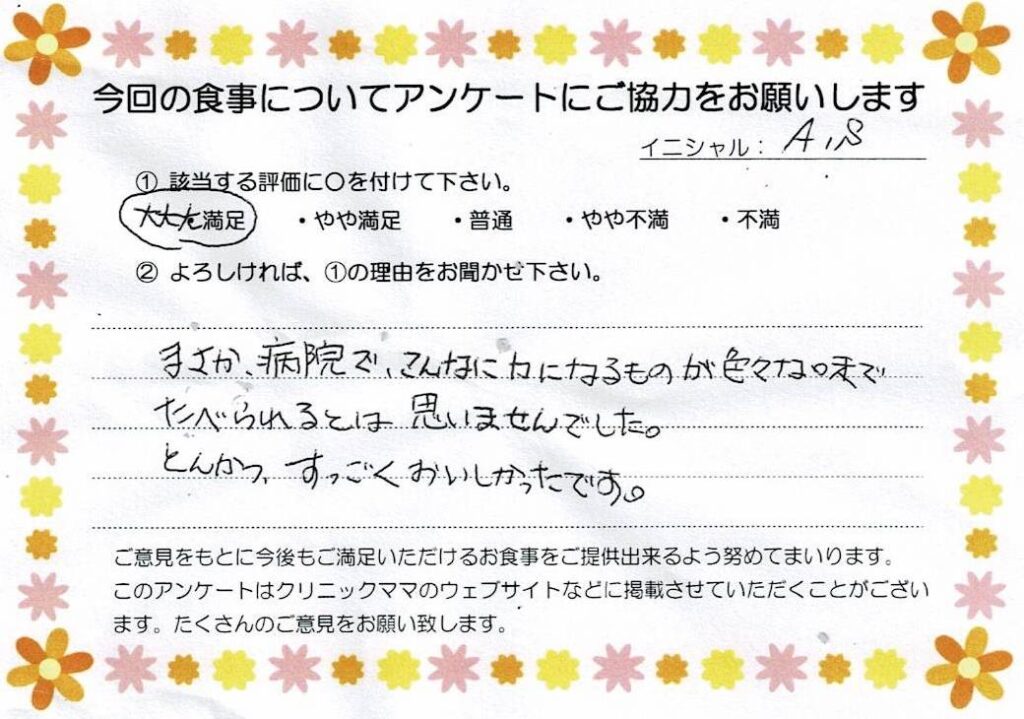 今回の食事についてアンケートにご協力をお願いします
イニシャル： A,S
① 該当する評価に〇を付けて下さい。
大大大満足 ・やや満足 ・普通 ・やや不満 ・不満
② よろしければ、①の理由をお聞かせ下さい。
まさか、病院で、こんなに力になるものが色々な味で
たべられるとは思いませんでした。
とんかつ、すっごくおいしかったです。
ご意見をもとに今後もご満足いただけるお食事をご提供出来るよう努めてまいります。
このアンケートはクリニックママのウェブサイトなどに掲載させていただくことがござい
ます。たくさんのご意見をお願い致します。